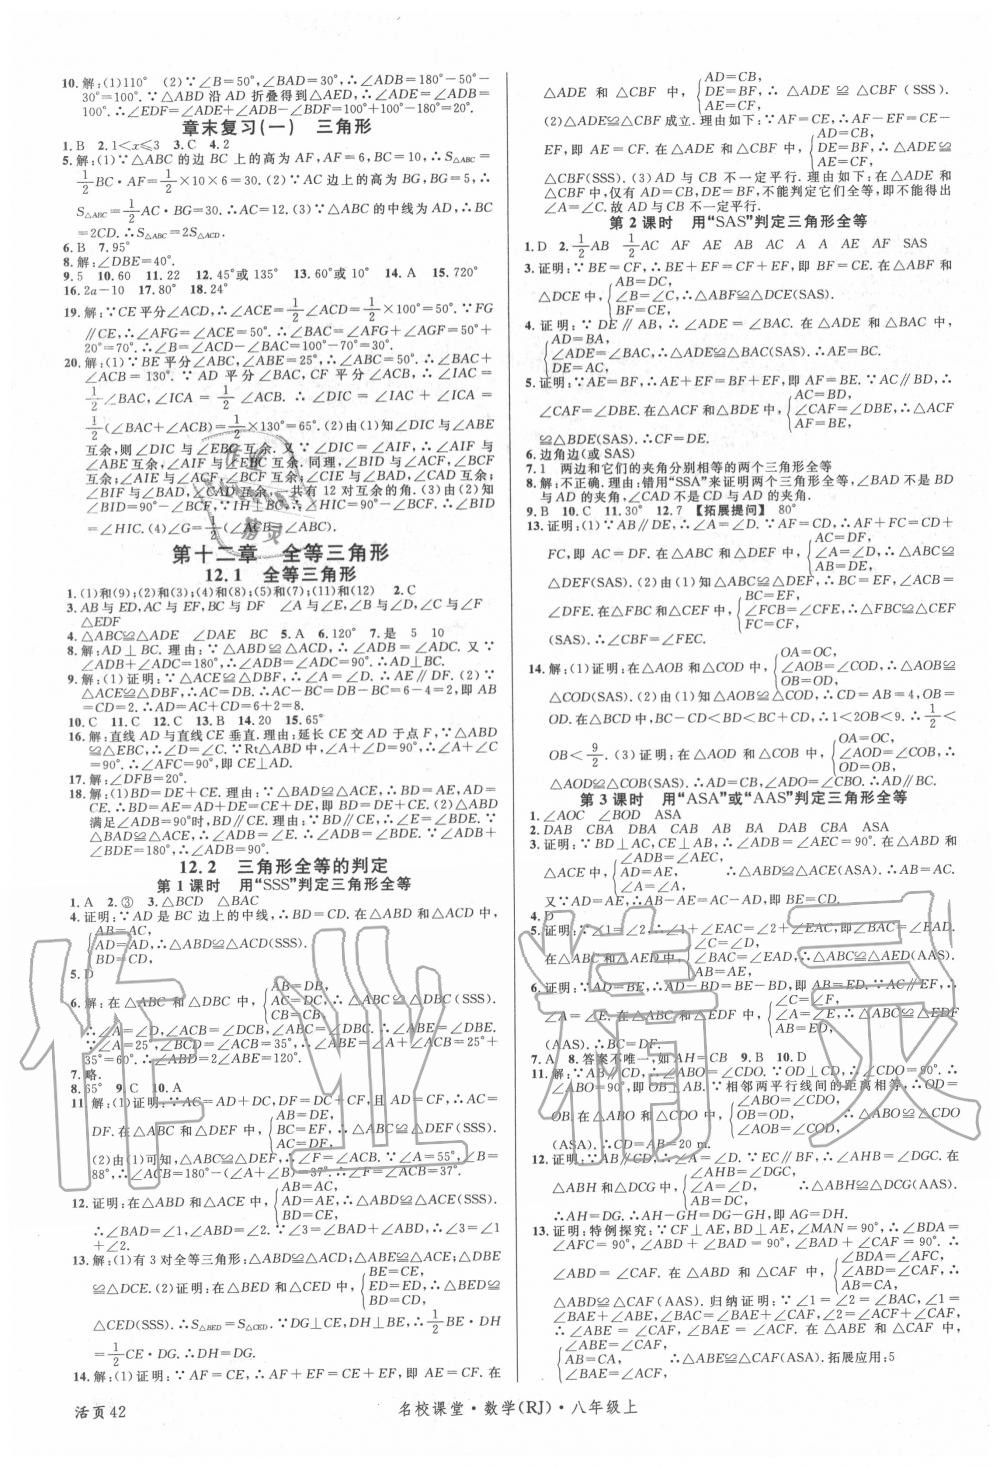 10. 解:(1)110° (2)∵∠B=50°,∠BAD=30°,∴∠ADB=180°-50°-
30°=100°. ∵△ABD 沿 AD 折叠得到△AED,∴∠ADE=∠ADB=
100°. ∴∠EDF=∠ADE+∠ADB-∠BDF=100°+100°-180°=20°.
章末复习(一) 三角形
1. B 2. 1<x≤3 3. C 4. 2
5. 解:(1)∵△ABC 的边 BC 上的高为 AF,AF=6,BC=10,∴S△ABC=
1/2 BC·AF=1/2×10×6=30. (2)∵AC 边上的高为 BG,BG=5,∴
S△ABC=1/2 AC·BG=30. ∴AC=12. (3)∵△ABC 的中线为 AD,∴BC
=2CD. ∴S△ABC=2S△ACD.
6. B 7. 95°
8. 解:∠DBE=40°.
9. 5 10. 60 11. 22 12. 45°或 135° 13. 60°或 10° 14. A 15. 720°
16. 2a-10 17. 80° 18. 24°
19. 解:∵CE 平分∠ACD,∴∠ACE=1/2∠ACD=1/2×100°=50°. ∵FG
∥CE,∴∠AFG=∠ACE=50°. ∴∠BAC=∠AFG+∠AGF=50°+
20°=70°. ∴∠B=∠ACD-∠BAC=100°-70°=30°.
20. 解:(1)∵BE 平分∠ABC,∠ABE=25°,∴∠ABC=50°. ∴∠BAC
+∠ACB=130°. ∵AD 平分∠BAC,CF 平分∠ACB,∴∠IAC=
1/2∠BAC,∠ICA=1/2∠ACB. ∴∠DIC=∠IAC+∠ICA=
1/2(∠BAC+∠ACB)=1/2×130°=65°. (2)由(1)知∠DIC 与∠ABE
互余,则∠DIC 与∠EBC 互余. 又∵∠DIC=∠AIF,∴∠AIF 与∠
ABE 互余,∠AIF 与∠EBC 互余. 同理,∠BID 与∠ACF,∠BCF
互余,∠AIE 与∠ACF,∠BCF 互余;∠BIF 与∠BAD,∠CAD 互余;
∠DIE 与∠BAD,∠CAD 互余;∴共有 12 对互余的角. (3)由(2)知
∠BID=90°-∠BCF,∵IH⊥BC,∴∠HIC=90°-∠BCF. ∴∠BID
=∠HIC. (4)∠G=1/2(∠ACB-∠ABC).
第十二章 全等三角形
12.1 全等三角形
1. (1)和(9);(2)和(3);(4)和(8);(5)和(7);(11)和(12) 2. C
3. AB 与 ED,AC 与 EF,BC 与 DF ∠A 与∠E,∠B 与∠D,∠C 与∠F
△EDF
4. △ABC≌△ADE ∠DAE BC 5. A 6. 120° 7. 是 5 10
8. 解:AD⊥BC. 理由:∵△ABD≌△ACD,∴∠ADB=∠ADC. 又∵
∠ADB+∠ADC=180°,∴∠ADB=∠ADC=90°. ∴AD⊥BC.
9. 解:(1)证明:∵△ACE≌△DBF,∴∠A=∠D. ∴AE∥DF. (2)∵
△ACE≌△DBF,∴AC=DB. ∴AC-BC=DB-BC=6-4=2,即 AB
=CD=2. ∴AD=AC+CD=6+2=8.
10. C 11. C 12. C 13. B 14. 20 15. 65°
16. 解:直线 AD 与直线 CE 垂直. 理由:延长 CE 交 AD 于点 F,∵△ABD
≌△EBC,∴∠D=∠C. ∵Rt△ABD 中,∠A+∠D=90°,∴∠A+∠C
=90°. ∴∠AFC=90°,即 CE⊥AD.
17. 解:∠DFB=20°.
18. 解:(1)BD=DE+CE. 理由:∵△BAD≌△ACE,∴BD=AE,AD=
CE. ∴BD=AE=AD+DE=CE+DE,即 BD=DE+CE. (2)△ABD
满足∠ADB=90°时,BD∥CE. 理由:∵BD∥CE,∴∠E=∠BDE. ∵
△BAD≌△ACE,∴∠ADB=∠E. ∴∠ADB=∠BDE. ∵∠ADB+
∠BDE=180°,∴∠ADB=90°.
12.2 三角形全等的判定
第 1 课时 用“SSS”判定三角形全等
1. A 2. ③ 3. △BCD △BAC
4. 证明:∵AD 是 BC 边上的中线,∴BD=CD. 在△ABD 和△ACD 中,
{AB=AC,
AD=AD,∴△ABD≌△ACD(SSS).
BD=CD,
5. D
6. 解:在△ABC 和△DBC 中,{AB=DB,
AC=DC,∴△ABC≌△DBC(SSS).
CB=CB,
∴∠A=∠D,∠ACB=∠DCB,∠ABC=∠DBC. ∴∠ABE=∠DBE.
∵∠A=25°,∠DCB=∠ACB=35°,∴∠ABE=∠A+∠ACB=25°+
35°=60°. ∴∠ABD=2∠ABE=120°.
7. 略.
8. 65° 9. C 10. A
11. 解:(1)证明:∵AC=AD+DC,DF=DC+CF,且 AD=CF,∴AC=
DF. 在△ABC 和△DEF 中,{AB=DE,
BC=EF,∴△ABC≌△DEF(SSS).
AC=DF,
(2)由(1)可知,△ABC≌△DEF,∴∠F=∠ACB. ∵∠A=55°,∠B=
88°,∴∠ACB=180°-(∠A+∠B)=37°. ∴∠F=∠ACB=37°.
12. 证明:在△ABD 和△ACE 中,{AB=AC,
AD=AE,∴△ABD≌△ACE(SSS).
BD=CE,
∴∠BAD=∠1,∠ABD=∠2. ∵∠3=∠BAD+∠ABD,∴∠3=∠1
+∠2.
13. 解:(1)有 3 对全等三角形:△ABD≌△ACD;△ABE≌△ACE;△DBE
≌△DCE. (2)证明:在△BED 和△CED 中,{BE=CE,
ED=ED,∴△BED≌
BD=CD,
△CED(SSS). ∴S△BED=S△CED. ∵DG⊥CE,DH⊥BE,∴1/2 BE·DH=
1/2 CE·DG. ∴DH=DG.
14. 解:(1)证明:∵AF=CE,∴AF+EF=CE+EF,即 AE=CF. 在
△ADE 和△CBF 中,{AD=CB,
DE=BF,∴△ADE≌△CBF(SSS).
AE=CF,
(2)△ADE≌△CBF 成立. 理由如下:∵AF=CE,∴AF-EF=CE-
EF,即 AE=CF. 在△ADE 和△CBF 中,{AD=CB,
DE=BF,∴△ADE≌
AE=CF,
△CBF(SSS). (3)AD 与 CB 不一定平行. 理由如下:在△ADE 和
△CBF 中,仅有 AD=CB,DE=BF,不能判定它们全等,即不能得出
∠A=∠C. 故 AD 与 CB 不一定平行.
第 2 课时 用“SAS”判定三角形全等
1. D 2. 1/2 AB 1/2 AC AF AE AB AC A A AE AF SAS
3. 证明:∵BE=CF,∴BE+EF=CF+EF,即 BF=CE. 在△ABF 和
△DCE 中,{AB=DC,
∠B=∠C,∴△ABF≌△DCE(SAS).
BF=CE,
4. 证明:∵DE∥AB,∴∠ADE=∠BAC. 在△ADE 和△BAC 中,
{AD=BA,
∠ADE=∠BAC,∴△ADE≌△BAC(SAS). ∴AE=BC.
DE=AC,
5. 证明:∵AE=BF,∴AE+EF=BF+EF,即 AF=BE. ∵AC∥BD,∴
∠CAF=∠DBE. 在△ACF 和△BDE 中,{AC=BD,
∠CAF=∠DBE,∴△ACF
AF=BE,
≌△BDE(SAS). ∴CF=DE.
6. 边角边(或 SAS)
7. 1 两边和它们的夹角分别相等的两个三角形全等
8. 解:不正确. 理由:错用“SSA”来证明两个三角形全等,∠BAD 不是 BD
与 AD 的夹角,∠CAD 不是 CD 与 AD 的夹角.
9. B 10. C 11. 30° 12. 7 【拓展提问】 80°
13. 证明:(1)∵AB∥DE,∴∠A=∠D. ∵AF=CD,∴AF+FC=CD+
FC,即 AC=DF. 在△ABC 和△DEF 中,{AC=DF,
∠A=∠D,∴△ABC≌
AB=DE,
△DEF(SAS). (2)由(1)知△ABC≌△DEF,∴BC=EF,∠ACB=
∠DFE. 在△FBC 和△CEF 中,{BC=EF,
∠FCB=∠CFE,∴△FBC≌△CEF
CF=FC,
(SAS). ∴∠CBF=∠FEC.
14. 解:(1)证明:在△AOB 和△COD 中,{OA=OC,
∠AOB=∠COD,∴△AOB≌
OB=OD,
△COD(SAS). (2)由(1)知△AOB≌△COD,∴CD=AB=4,OB=
OD. 在△BCD 中,BC-CD<BD<BC+CD,∴1<2OB<9. ∴1/2<
OB<9/2. (3)证明:在△AOD 和△COB 中,{OA=OC,
∠AOD=∠COB,∴
OD=OB,
△AOD≌△COB(SAS). ∴AD=CB,∠ADO=∠CBO. ∴AD∥BC.
第 3 课时 用“ASA”或“AAS”判定三角形全等
1. ∠AOC ∠BOD ASA
2. DAB CBA DBA CAB AB BA DAB CBA ASA
3. 证明:∵BD⊥AC,CE⊥AB,∴∠ADB=∠AEC=90°. 在△ADB 和
△AEC 中,{∠ADB=∠AEC,
AD=AE,∴△ADB≌△AEC(ASA). ∴AB=AC.
∠A=∠A,
又∵AD=AE,∴AB-AE=AC-AD,即 BE=CD.
4. D
5. 证明:∵∠1=∠2,∴∠1+∠EAC=∠2+∠EAC,即∠BAC=∠EAD.
在△ABC 和△AED 中,
∴△ABC≌△AED(AAS).
6. 证明:∵AD=BE,∴AD-BD=BE-BD,即 AB=ED. ∵AC∥EF,∴
∠A=∠E. 在△ABC 和△EDF 中,{∠C=∠F,
∠A=∠E,∴△ABC≌△EDF
AB=ED,
(AAS). ∴BC=DF.
7. A 8. 答案不唯一,如 AH=CB 9. B 10. D
11. 解:∵AB∥CD,∴∠ABO=∠CDO. ∵OD⊥CD,∴∠CDO=90°. ∴
∠ABO=90°,即 OB⊥AB. ∵相邻两平行线间的距离相等,∴OD=
OB. 在△ABO 和△CDO 中,{∠ABO=∠CDO,
OB=OD,∴△ABO≌△CDO
∠AOB=∠COD,
(ASA). ∴CD=AB=20 m.
12. 证明:∵AB∥CD,∴∠A=∠D. ∵EC∥BF,∴∠AHB=∠DGC. 在
△ABH 和△DCG 中,{∠AHB=∠DGC,
∠A=∠D,∴△ABH≌△DCG(AAS).
AB=DC,
∴AH=DG. ∴AH-GH=DG-GH,即 AG=DH.
13. 证明:特例探究:∵CF⊥AE,BD⊥AE,∠MAN=90°,∴∠BDA=
∠AFC=90°,∠ABD+∠BAD=90°,∠BAD+∠CAF=90°. ∴
∠ABD=∠CAF. 在△ABD 和△CAF 中,{∠BDA=∠AFC,
∠ABD=∠CAF,∴
AB=CA,
△ABD≌△CAF(AAS). 归纳证明:∵∠1=∠2=∠BAC,∠1=
∠BAE+∠ABE,∠BAC=∠BAE+∠CAF,∠2=∠ACF+∠CAF,
∴∠ABE=∠CAF,∠BAE=∠ACF. 在△ABE 和△CAF 中,
{∠ABE=∠CAF,
AB=CA,∴△ABE≌△CAF(ASA). 拓展应用:5
∠BAE=∠ACF,
活页 42
名校课堂·数学(RJ)·八年级上
作业精灵